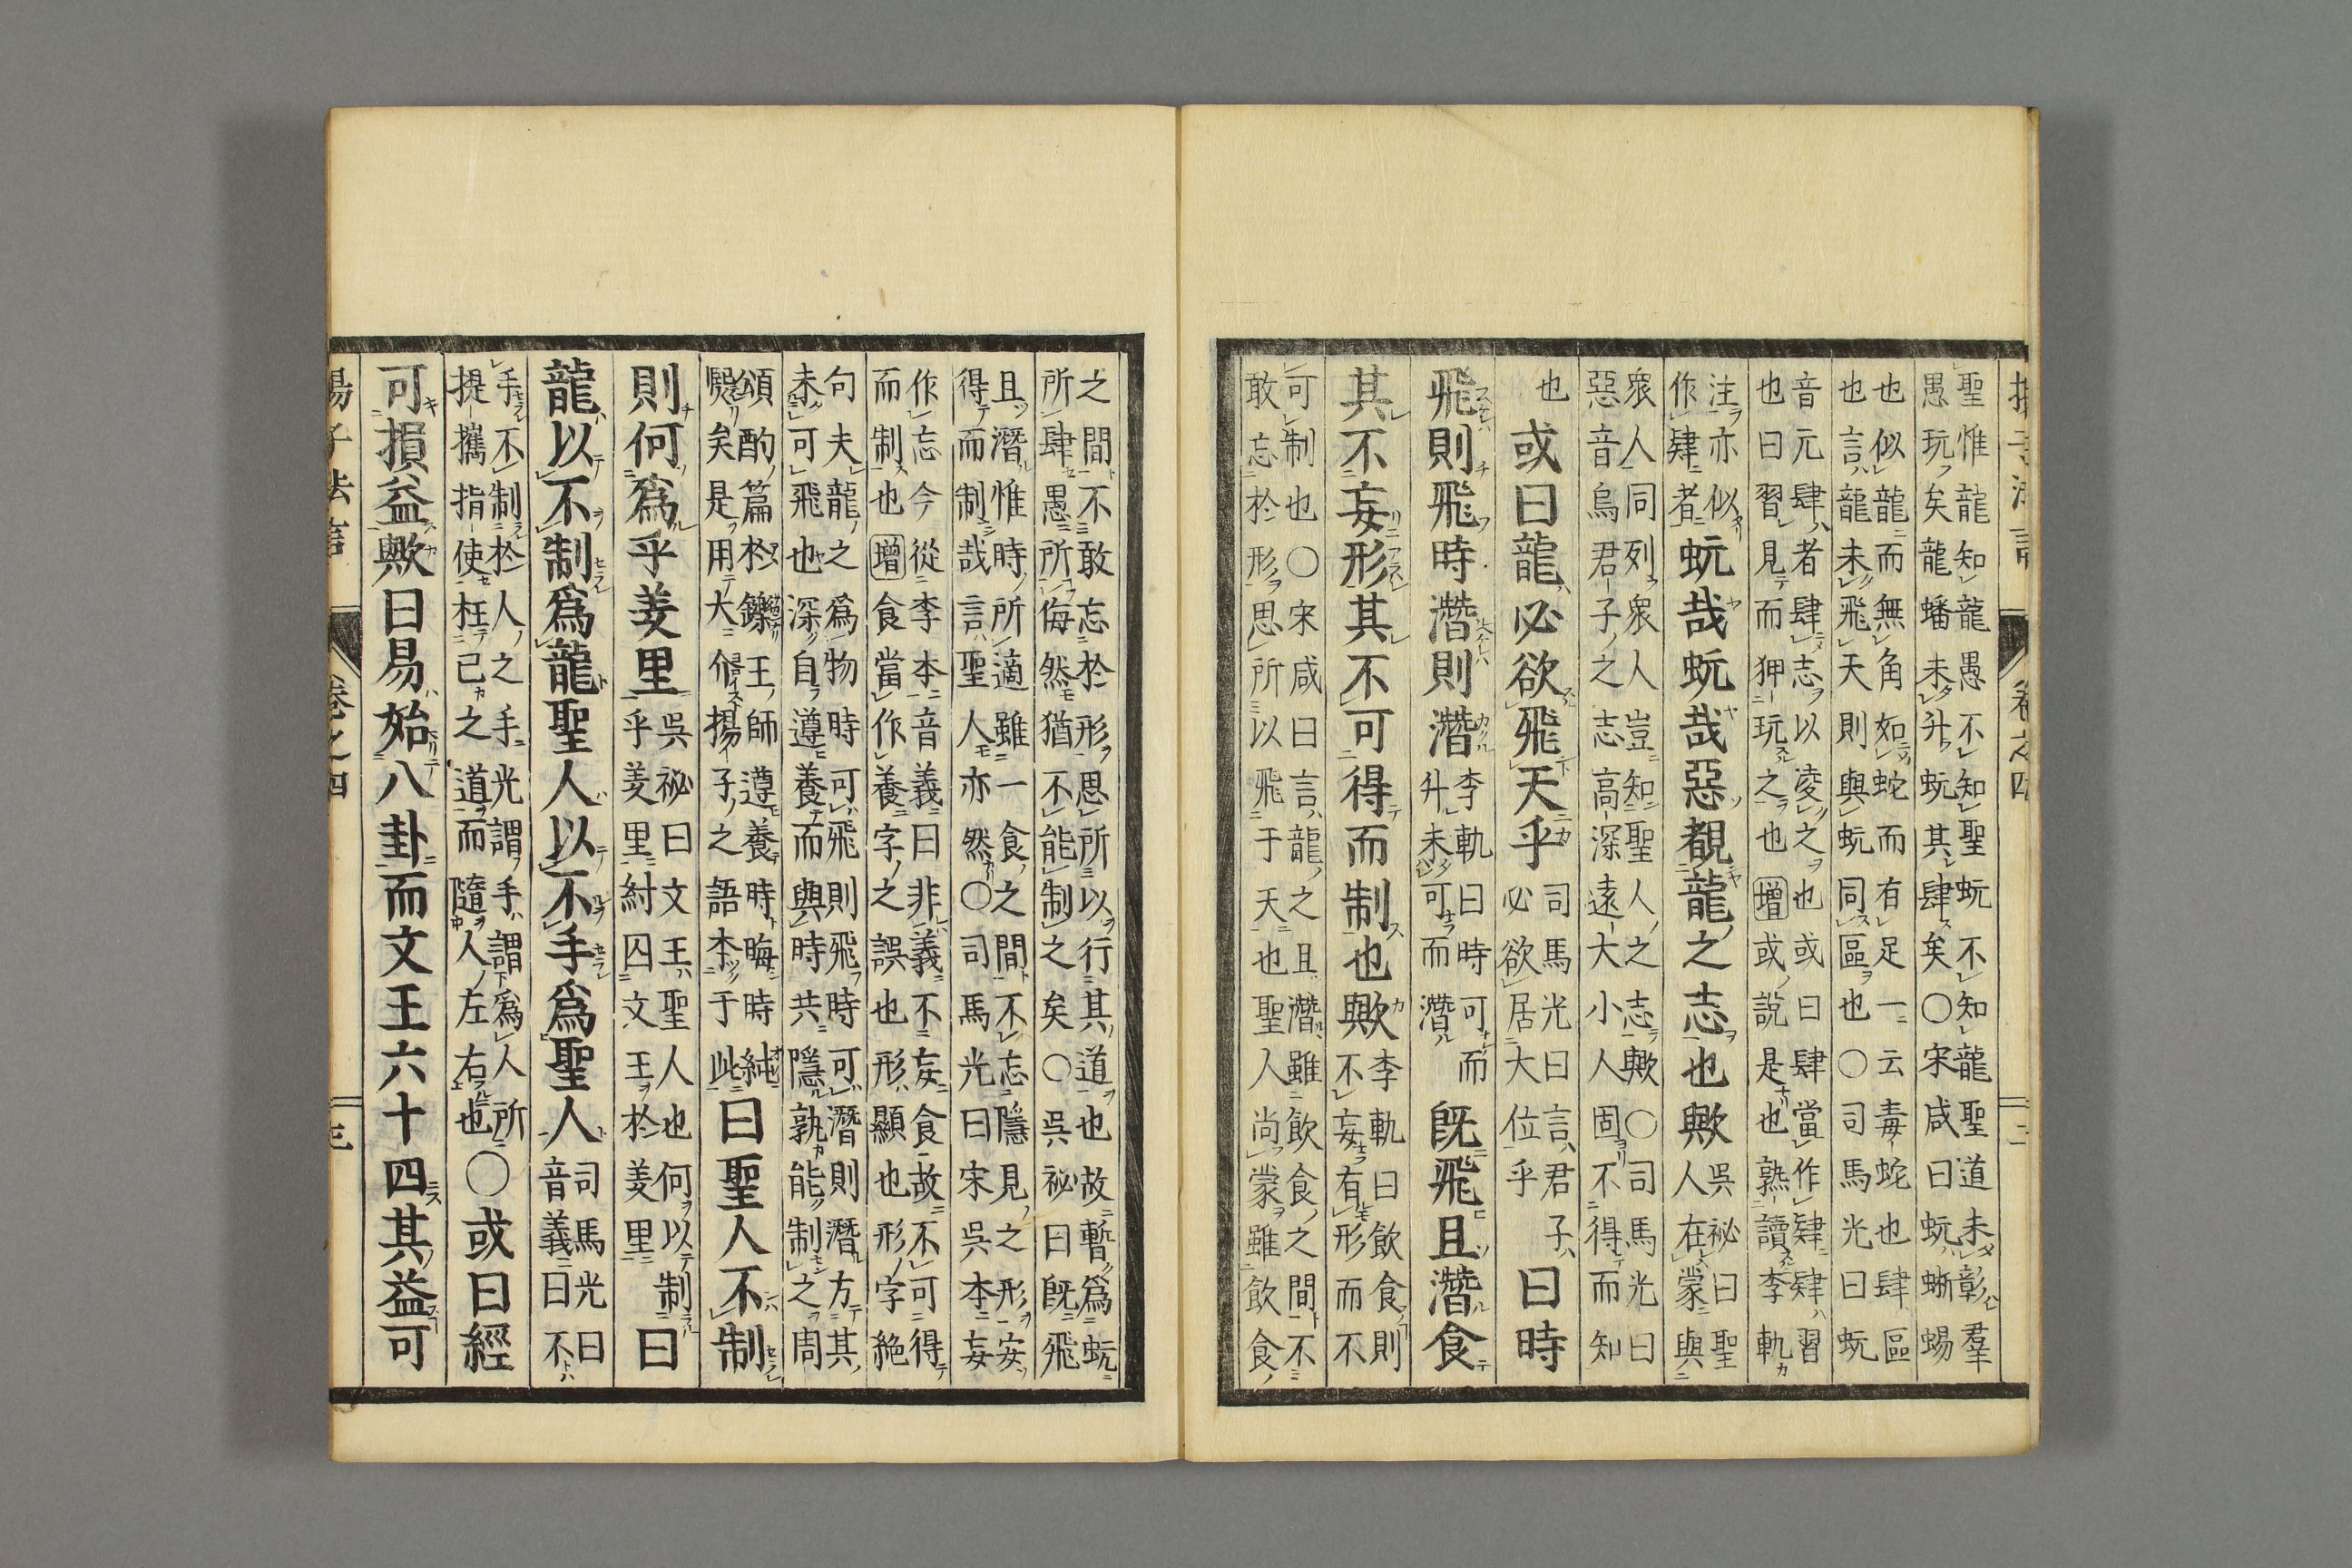 卷之四
聖惟龍知龍愚不知聖蚖不知龍聖道未彰羣
愚玩矣龍蟠未升蚖其肆矣〇宋咸曰蚖蜥蜴
也似龍而無角如蛇而有足一云毒蛇也肆區
也言龍未飛天則與蚖同區也〇司馬光曰蚖
音元肆者肆志以凌之也或曰肆當作肄肄習
也曰習見而狎玩之也增或說是也熟讀李軌
注亦似
作肄者
蚖哉蚖哉惡覩龍之志也歟
吳祕曰聖
人在蒙與
衆人同列衆人豈知聖人之志歟〇司馬光曰
惡音烏君子之志高深遠大小人固不得而知
也
或曰龍必欲飛天乎
司馬光曰言君子
必欲居大位乎
曰時
飛則飛時潛則潛
李軌曰時可而
升未可而潛
既飛且潛食
其不妄形其不可得而制也歟
李軌曰飲食則
不妄有形而不
可制也〇宋咸曰言龍之且潛雖飲食之間不
敢忘於形思所以飛于天也聖人尚蒙雖飲食
之間不敢忘於形思所以行其道也故暫爲蚖
所肆愚所侮然猶不能制之矣〇吳祕曰既飛
且潛惟時所適雖一食之間不忘隱見之形安
得而制哉言聖人亦然〇司馬光曰宋吳本妄
作忘今從李本音義曰非義不妄食故不可得
而制也增食當作養字之誤也形顯也形字絶
句夫龍之爲物時可飛則飛時可潛則潛方其
未可飛也深自遵養而與時共隱孰能制之周
頌酌篇於鑠王師遵養時晦時純
熙矣是用大介揚子之語本于此
曰聖人不制
則何爲乎羑里
吳祕曰文王聖人也何以制
乎羑里紂囚文王於羑里
曰
龍以不制爲龍聖人以不手爲聖人
司馬光曰
音義曰不
手不制於人之手光謂手謂爲人所
提攜指使枉已之道而隨人左右也
〇或曰經
可損益歟曰易始八卦而文王六十四其益可
揚子法言 卷之四 三